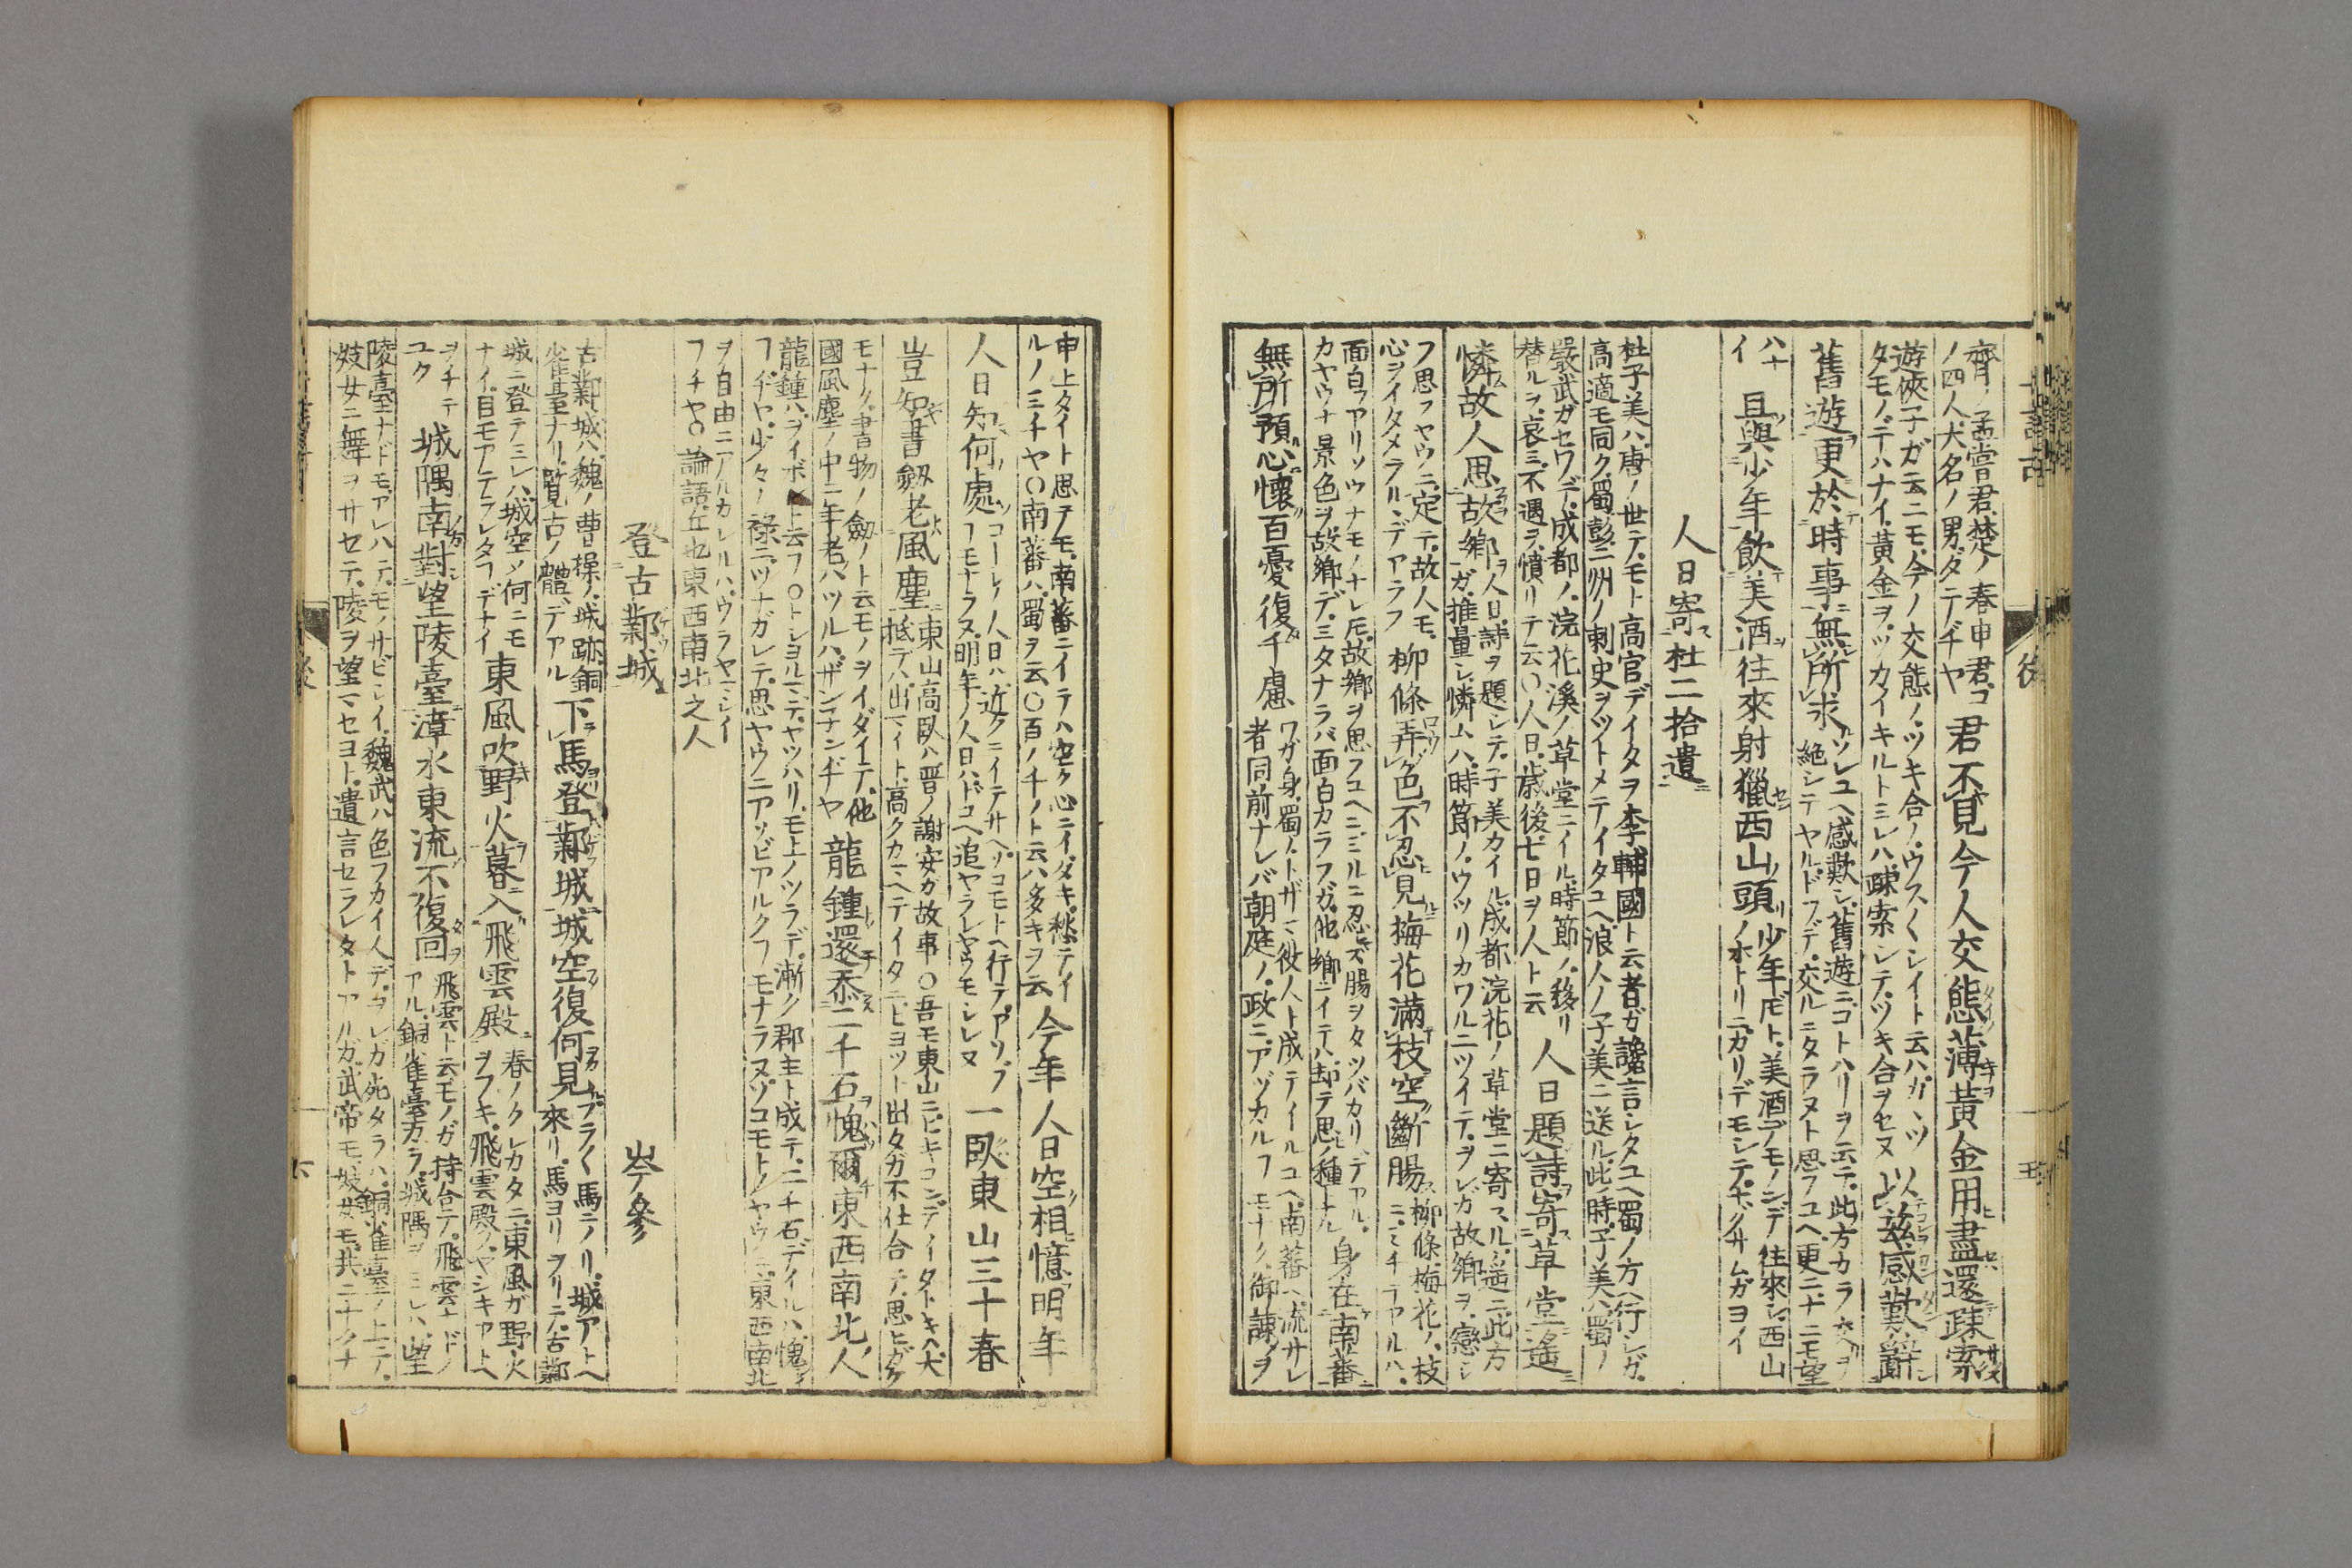 齊ノ孟嘗君楚ノ春申君ゴ
ノ四人大名ノ男ダテヂヤ
君不見今人交態薄黃金用盡還疎索
遊俠子ガ云ニモ今ノ交態ノツキ合ノウスクシイト云ハガヽツ
タモノデハナイ黃金ヲツカイキルトミレハ疎索シテツキ合ヲセヌ
以茲感歎辭
舊遊更於時事無所求
ソレユヘ感歎シ舊遊ニコトハリヲ云テ此方カラ交ヲ
絶シテヤルトフデ交ルニタラヌト思フユヘ更ニナニモ望
ハナ
イ
且與少年飲美酒往來射獵西山頭
少年ドモト美酒ゴモノンデ往來シ西山
ノホトリニカリデモシテキグサムガヨイ
人日寄杜二拾遺
杜子美ハ唐ノ世テモト高官デイタヲ李輔國ト云者ガ讒言シタユヘ蜀ノ方ヘ行シガ
高適モ同ク蜀彭二州ノ刺史ヲツトメテイタユヘ浪人ノ子美ニ送ル此時子美ハ蜀ノ
嚴武ガセワデ成都ノ浣花溪ノ草堂ニイル時節ノ移リ
替ルヲ哀ミ不遇ヲ憤リテ云〇人日歲後七日ヲ人ト云
人日題詩寄草堂遙
憐故人思故鄉
人日詩ヲ題シテ子美カイル成都浣花ノ草堂ニ寄スル遙ニ此方
ガ推量シ憐ムハ時節ノウツリカワルニツイテヲレガ故鄉ヲ戀シ
フ思フヤウニ定テ故人モ
心ヲイタメラルヽデアラフ
柳條弄色不忍見梅花滿枝空斷腸
柳條梅花ノ枝
ニミチテヤルハ
面白フアリソウナモノナレ𪜈故鄉ヲ思フユヘニミルニ忍ビズ腸ヲタツバカリデアル
カヤウナ景色ヲ故鄉デミタナラバ面白カラフガ他鄉ニイテハ却テ思ノ種トナル
身在南蕃
無所預心懷百憂復千慮
ワガ身蜀ノトザマ役人ト成テイルユヘ南蕃ヘ流サレ
者同前ナレバ朝庭ノ政ニアヅカルフモナク御諫ヲ
申上タイト思テモ南蕃ニイテハ空ク心ニイダキ愁テイ
ルノミチヤ〇南蕃ハ蜀ヲ云〇百ノ千ノト云ハ多キヲ云
今年人日空相憶明年
人日知何處
コーレノ人日ハ近クニイテサヘソコモトヘ行テアソブ
フモナラヌ明年ノ人日ハドコヘ追ヤラレヤウモシレヌ
一臥東山三十春
豈知書劔老風塵
東山高臥ハ晋ノ謝安ガ故事〇吾モ東山ニヒキコンデイタトキハ大
抵デハ出マイト高クカマヘテイタニヒヨツト出タガ不仕合テ思ヒガケ
モナク書物ノ劔ノト云モノヲイダイテ他
國風塵ノ中ニ年老ハツルハザンナンヂヤ
龍鍾還忝二千石愧爾東西南北人
龍鍾ハヲイボレト云フ〇トシヨルマテヤツハリモ上ノツラデ漸ク郡主ト成テ二千石デイルハ愧シイ
フヂヤ少々ノ祿ニツナガレテ思ヤウニアソビアルクフモナラヌソコモトノヤウニ東西南北
ヲ自由ニアルカレルハウラヤマシイ
フチヤ〇論語丘也東西南北之人
登古鄴城
岑參
古鄴城ハ魏ノ曹操ノ城跡銅
雀臺ナリ覽古ノ體デアル
下馬登鄴城城空復何見
ブラ〱馬ニノリ城アトヘ
來リ馬ヨリヲリテ古鄴
城ニ登テミレハ城空ソ何ニモ
ナイ目モアテラレタフデナイ
東風吹野火暮入飛雲殿
春ノクレカタニ東風ガ野火
ヲフキ飛雲殿ノヤシキアトヘ
ヲチテ
ユク
城隅南對望陵臺漳水東流不復回
飛雲ト云モノガ持合テ飛雲ナドノ
アル銅雀臺カラ城隅ヲミレハ望
陵臺ナドモアレハテモノサビシイ魏武ハ色フカイ人デヲレガ死タラハ銅雀臺ノ上ニノ
妓女ニ舞ヲサセテ陵ヲ望マセヨト遺言セラレタトアルガ武帝モ妓女モ共ニナクナ